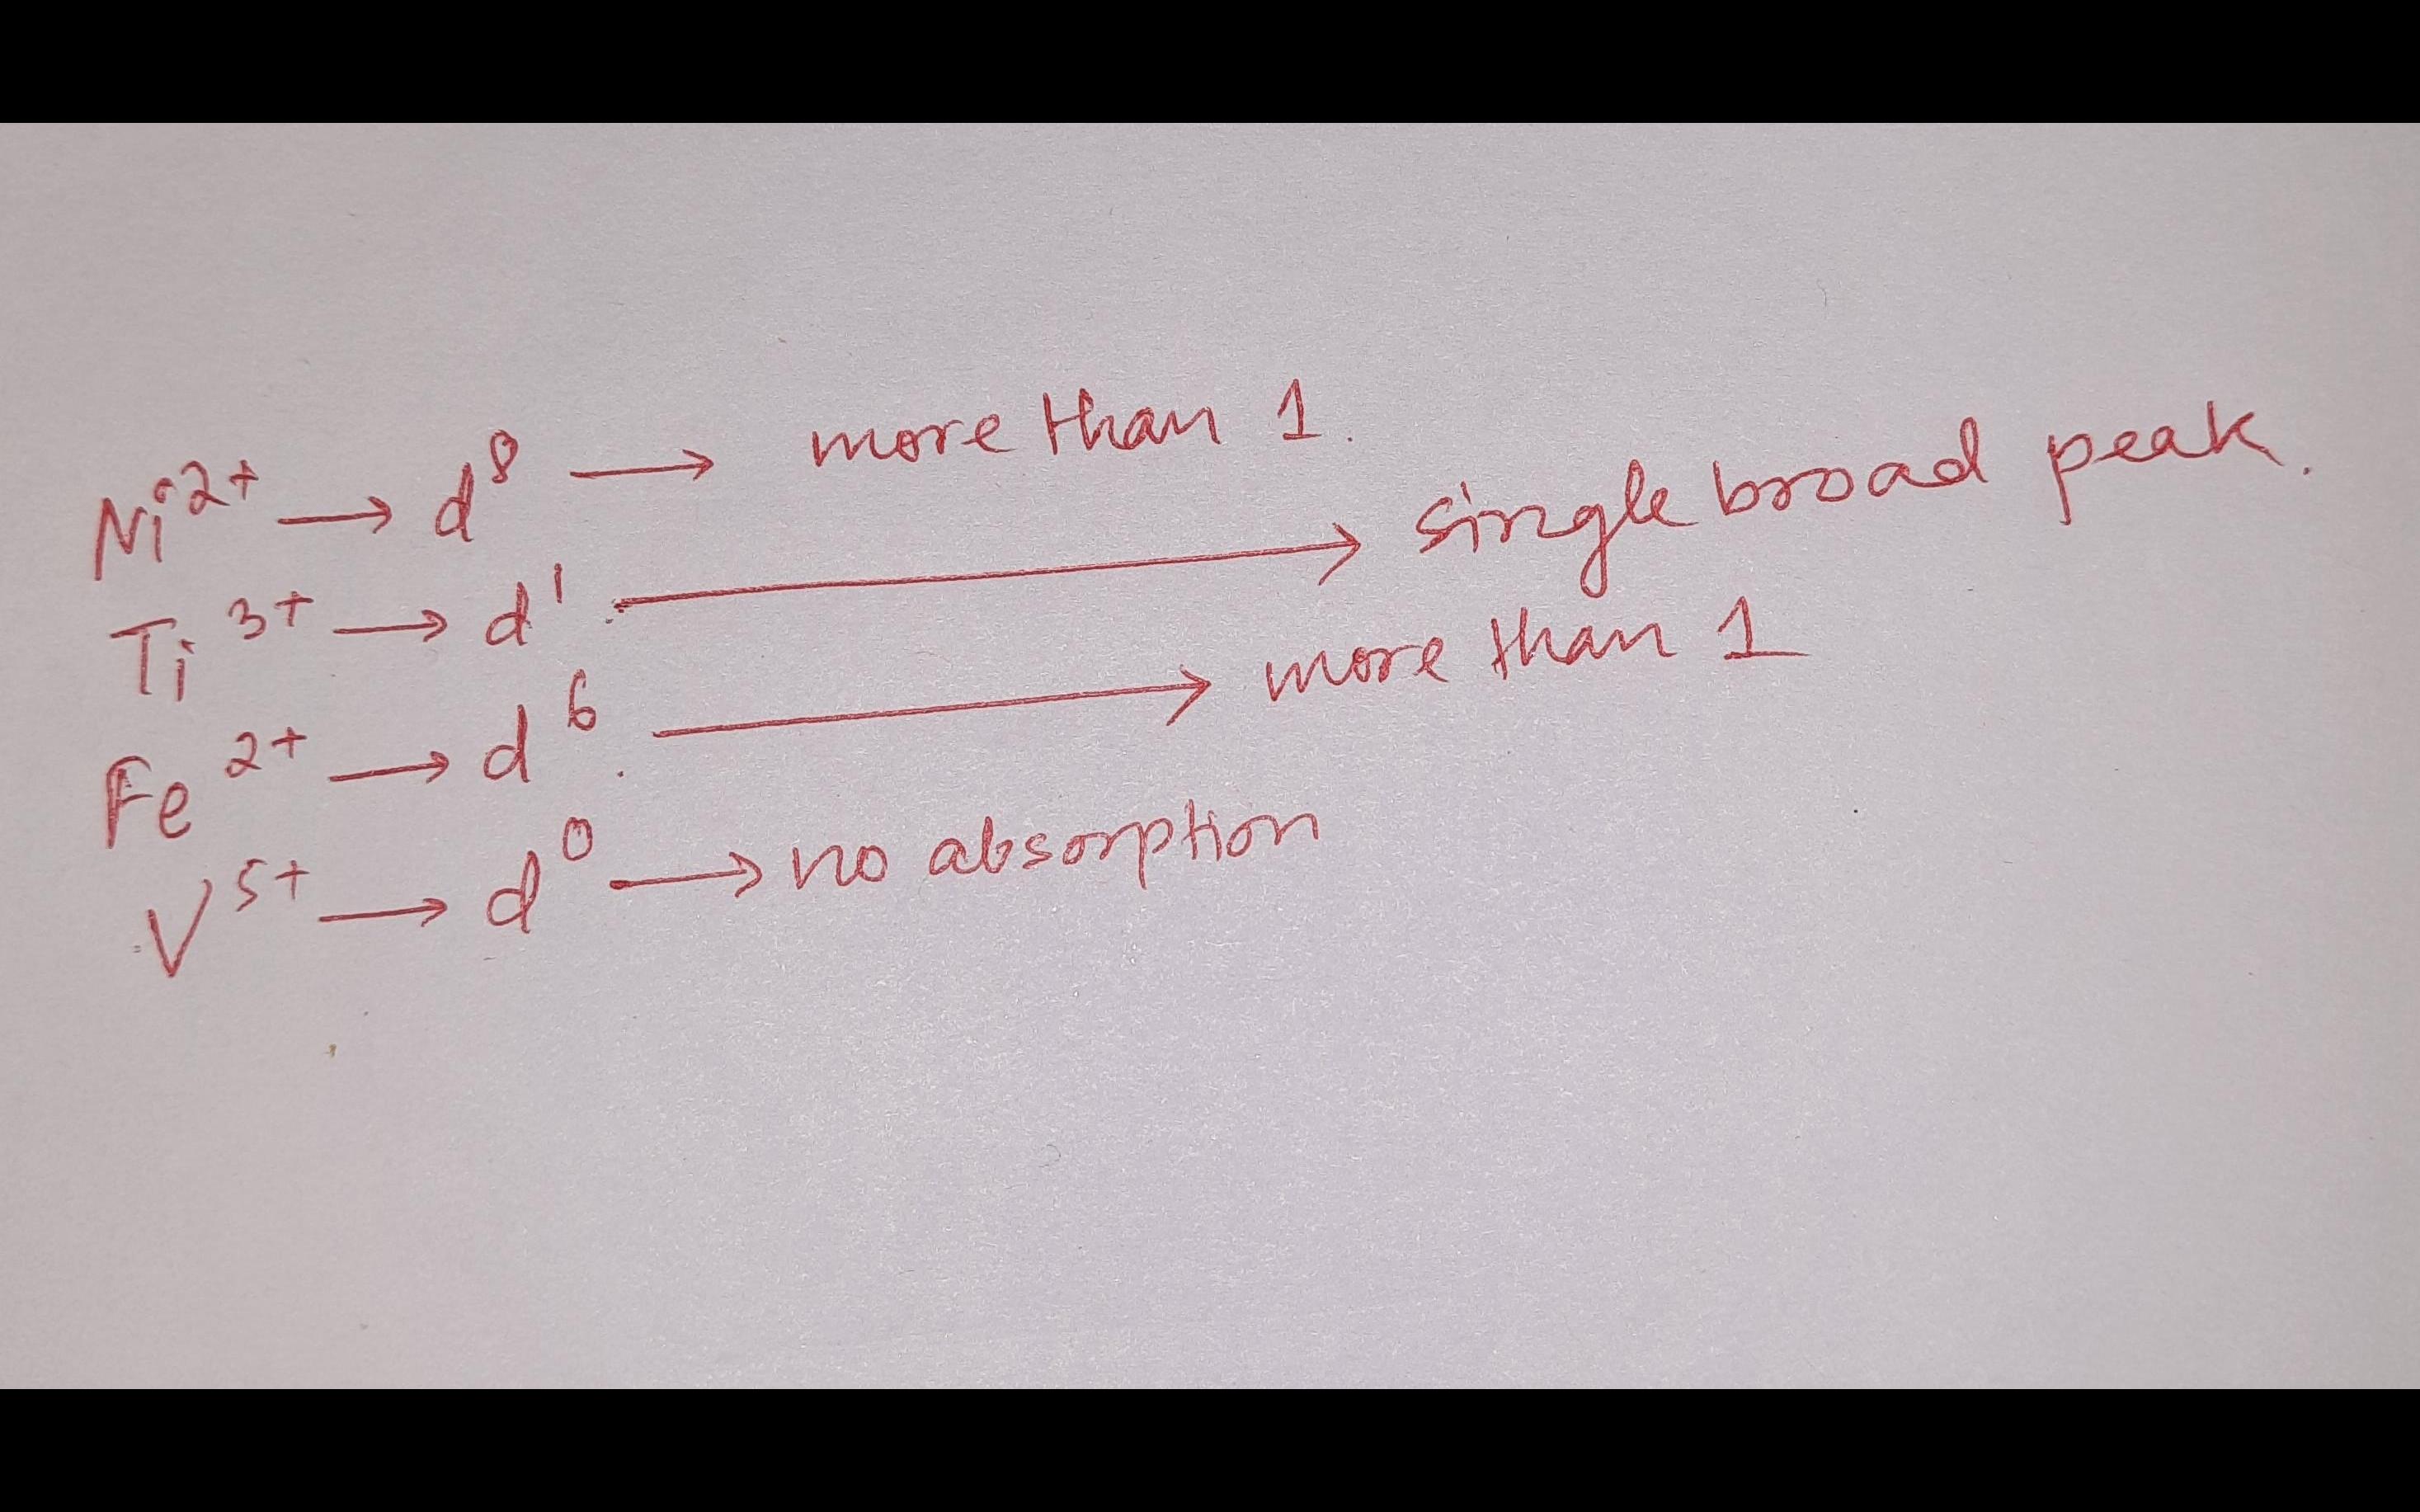 Ni²⁺ → d⁸ → more than 1.
Ti³⁺ → d¹ → single broad peak.
Fe²⁺ → d⁶ → more than 1
V⁵⁺ → d⁰ → no absorption